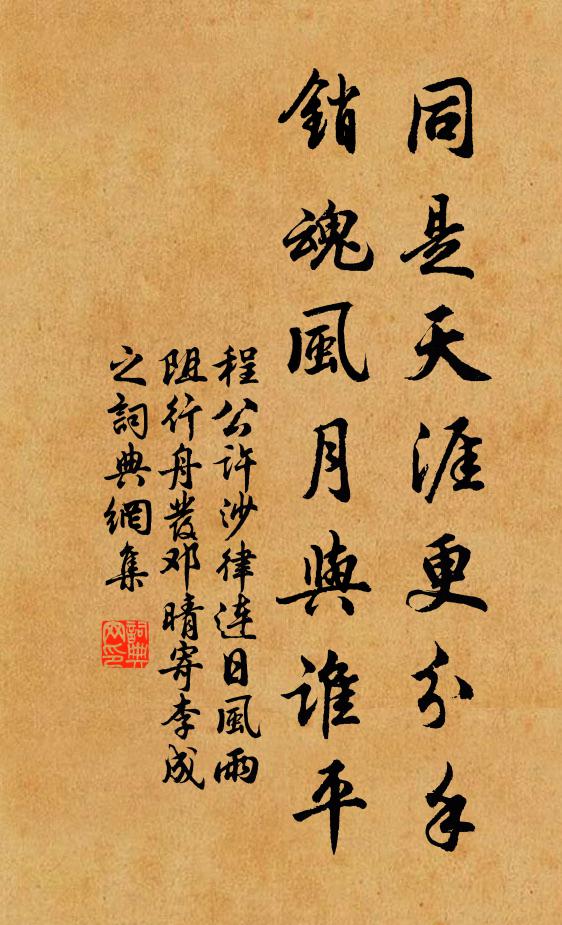 同是天涯更分手
銷魂風月與誰平
程公許沙律連日風雨
阻行舟發邓晴寄李成
之詞典網集
詞典網印